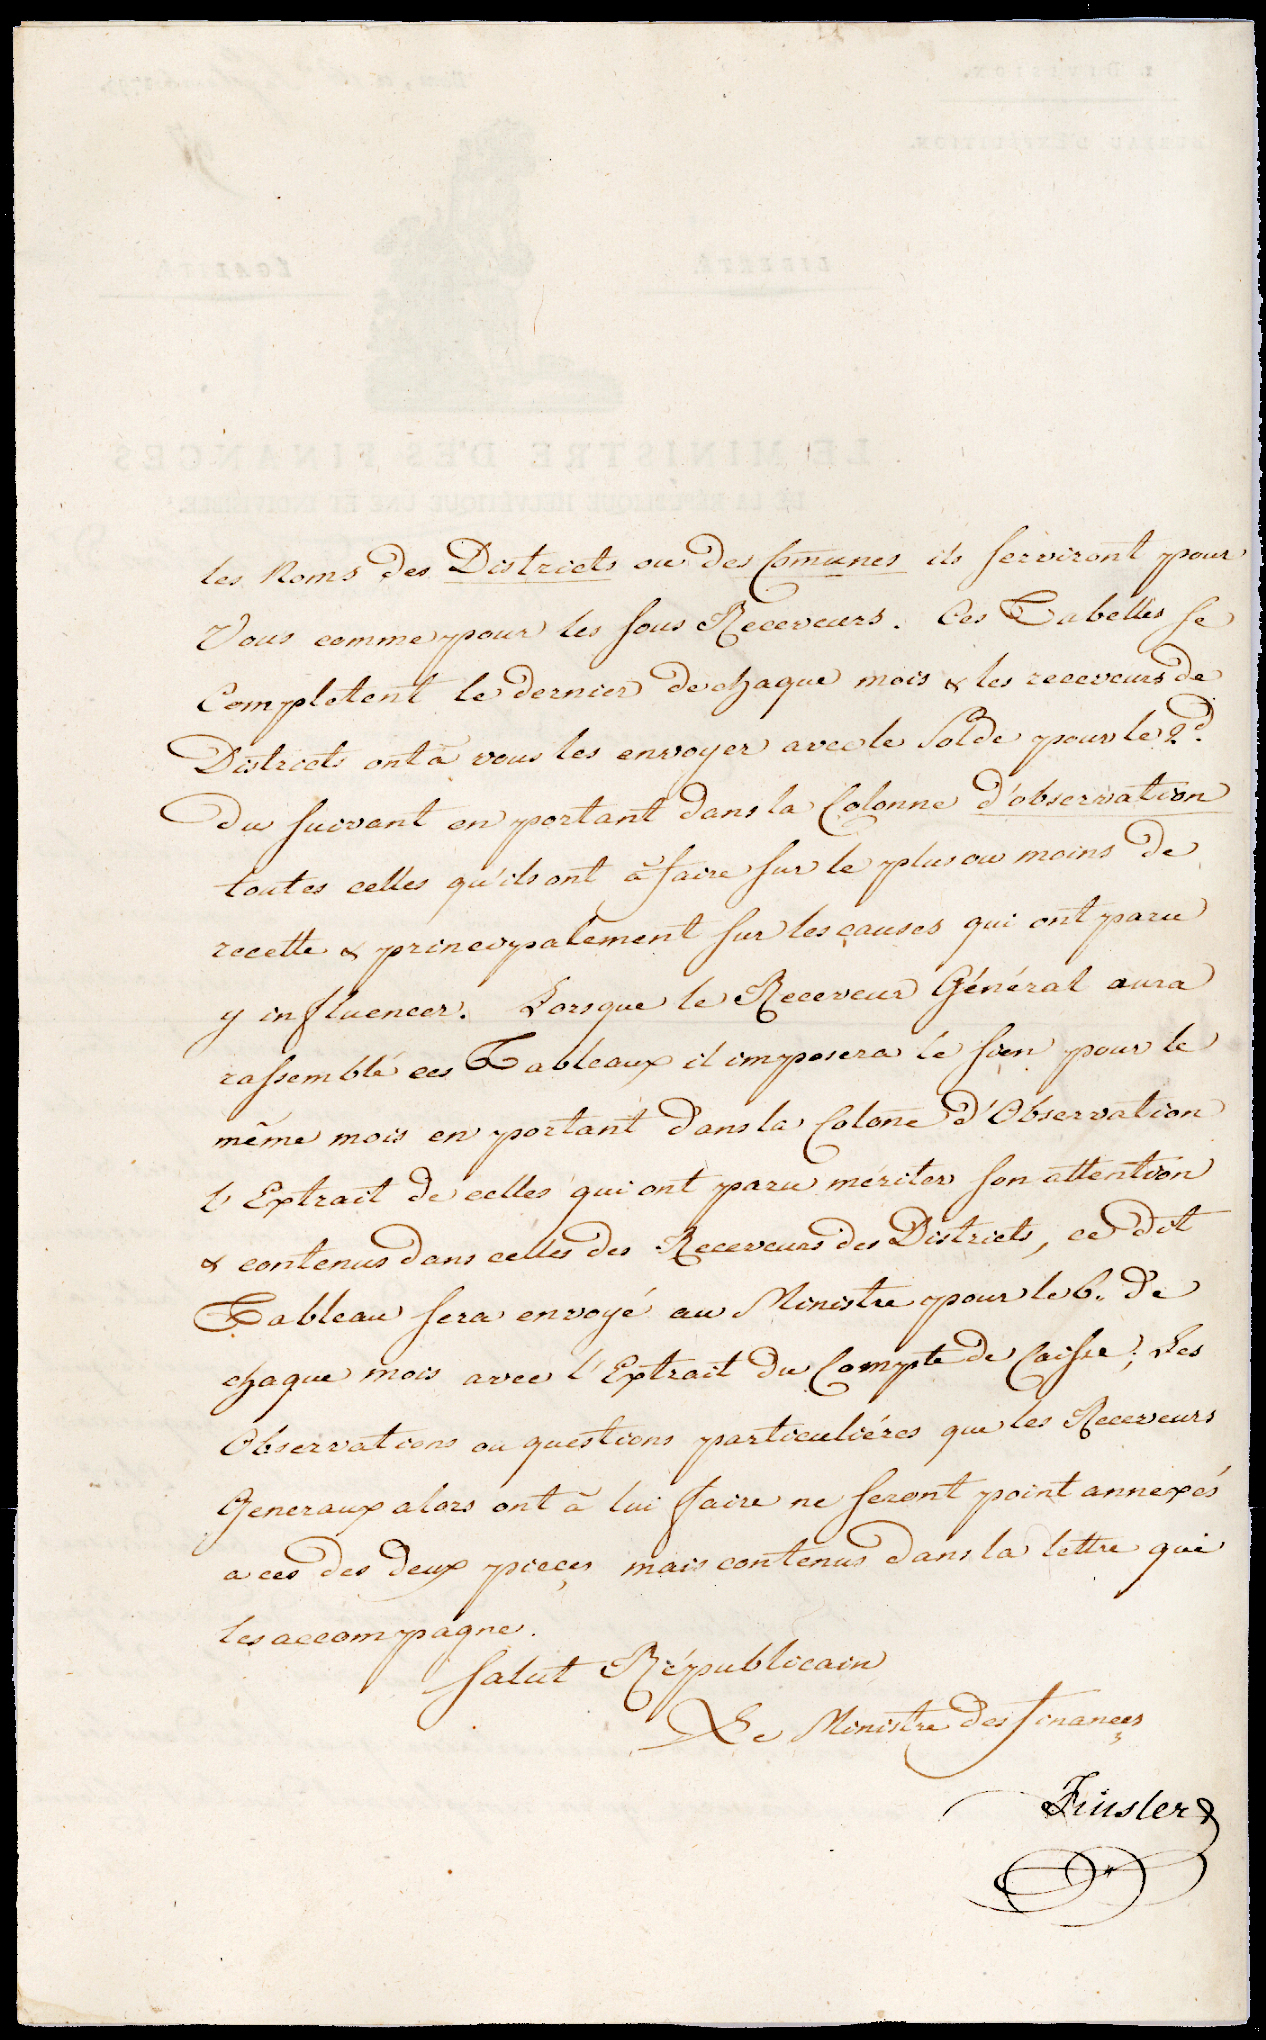 les Noms des Districts ou des Comunes ils serviront pour
Vous comme pour les sous Receveurs. Ces Tabelles se
Completent le dernier de chaque mois & les receveurs de
Districts ont à vous les envoyer avec le Solde pour le 2d.
du suivant en portant dans la Colonne d'observation
toutes celles qu'ils ont à faire sur le plus ou moins de
recette & principalement sur les causes qui ont paru
y influencer. Lorsque le Receveur Général aura
rassemblé ces Tableaux il imposera le sien pour le
même mois en portant dans la Colone d'Observation
l'Extrait de celles qui ont paru mériter son attention
& contenus dans celles des Receveurs des Districts, ce dit
Tableau sera envoyé au Ministre pour le 6. de
chaque mois avec l'Extrait du Compte de Caisse; Les
Observations ou questions particuliéres que les Receveurs
Generaux alors ont à lui faire ne seront point annexés
a ces des deux pieces mais contenus dans la lettre qui
les accompagne.
Salut Républicain
Le Ministre des finances
Finsler